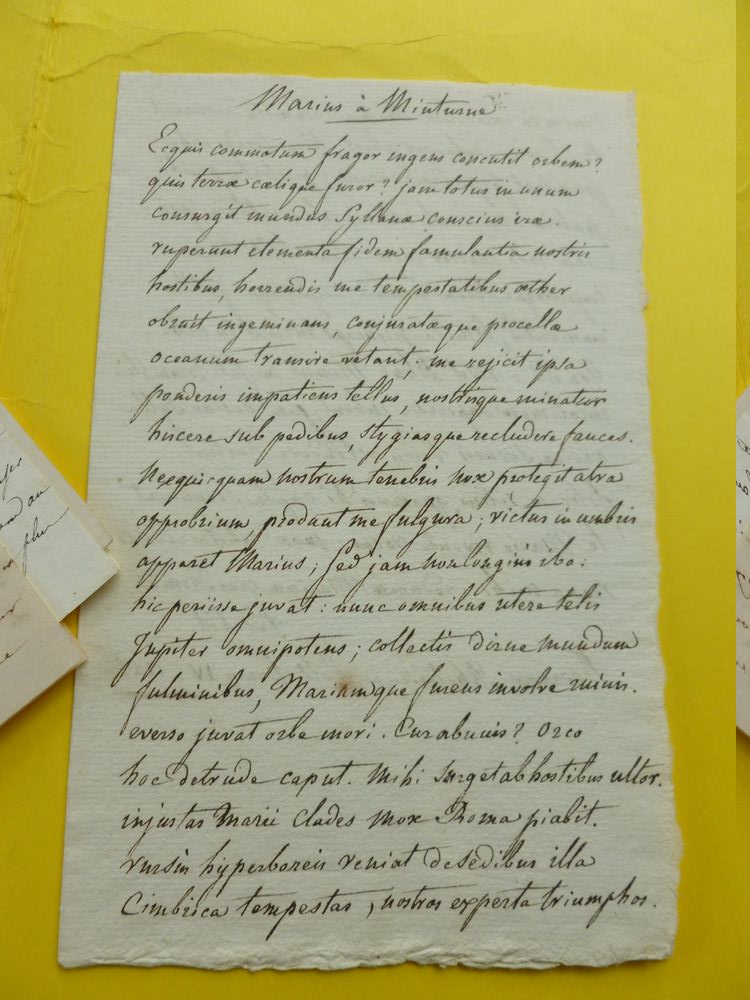 Marius à Minturne
Ecquis commotum fragor ingens concutit orbem?
quis terræ cælique furor? jam totus in unum
consurgit mundus Syllanæ conscius iræ.
ruperunt elementa fidem famulantia nostris
hostibus, horrendis me tempestatibus æther
obruit ingeminans, conjuratæque procellæ
oceanum transire vetant; me rejicit ipsa
ponderis impatiens tellus, nostrisque minatur
hiscere sub pedibus, stygiasque recludere fauces.
nequicquam nostrum tenebris nox protegit atra
opprobrium, produnt me fulgura; victus in umbris
apparet Marius; sed jam non longius ibo:
hic periisse juvat: nunc omnibus utere telis
Jupiter omnipotens; collectis dirue mundum
fulminibus, Mariumque furens involve ruinis.
everso juvat orbe mori. Cur abnuis? Orco
hoc detrude caput. Mihi surget ab hostibus ultor.
injustas Marii clades mox Roma piabit.
rursùs hyperboreis veniat de sedibus illa
Cimbrica tempestas, nostros experta triumphos.
user
au
plus